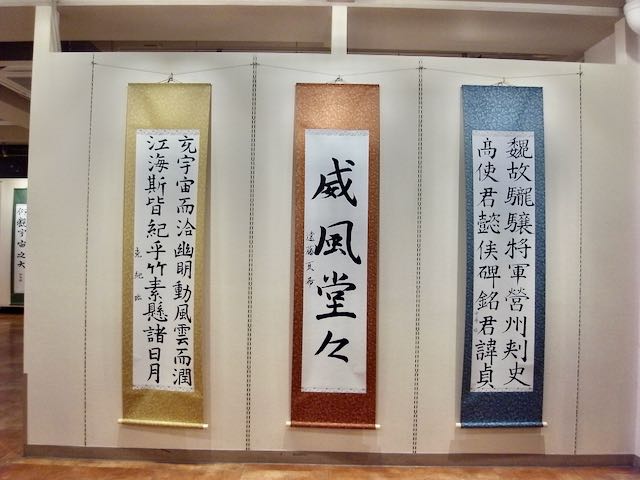 仰觀宇宙之大
充宇宙而洽幽明動風雲而潤
江海斯皆紀乎竹素懸諸日月
威風堂々
魏故龍驤將軍營州刺史
髙使君懿侯碑銘君諱貞